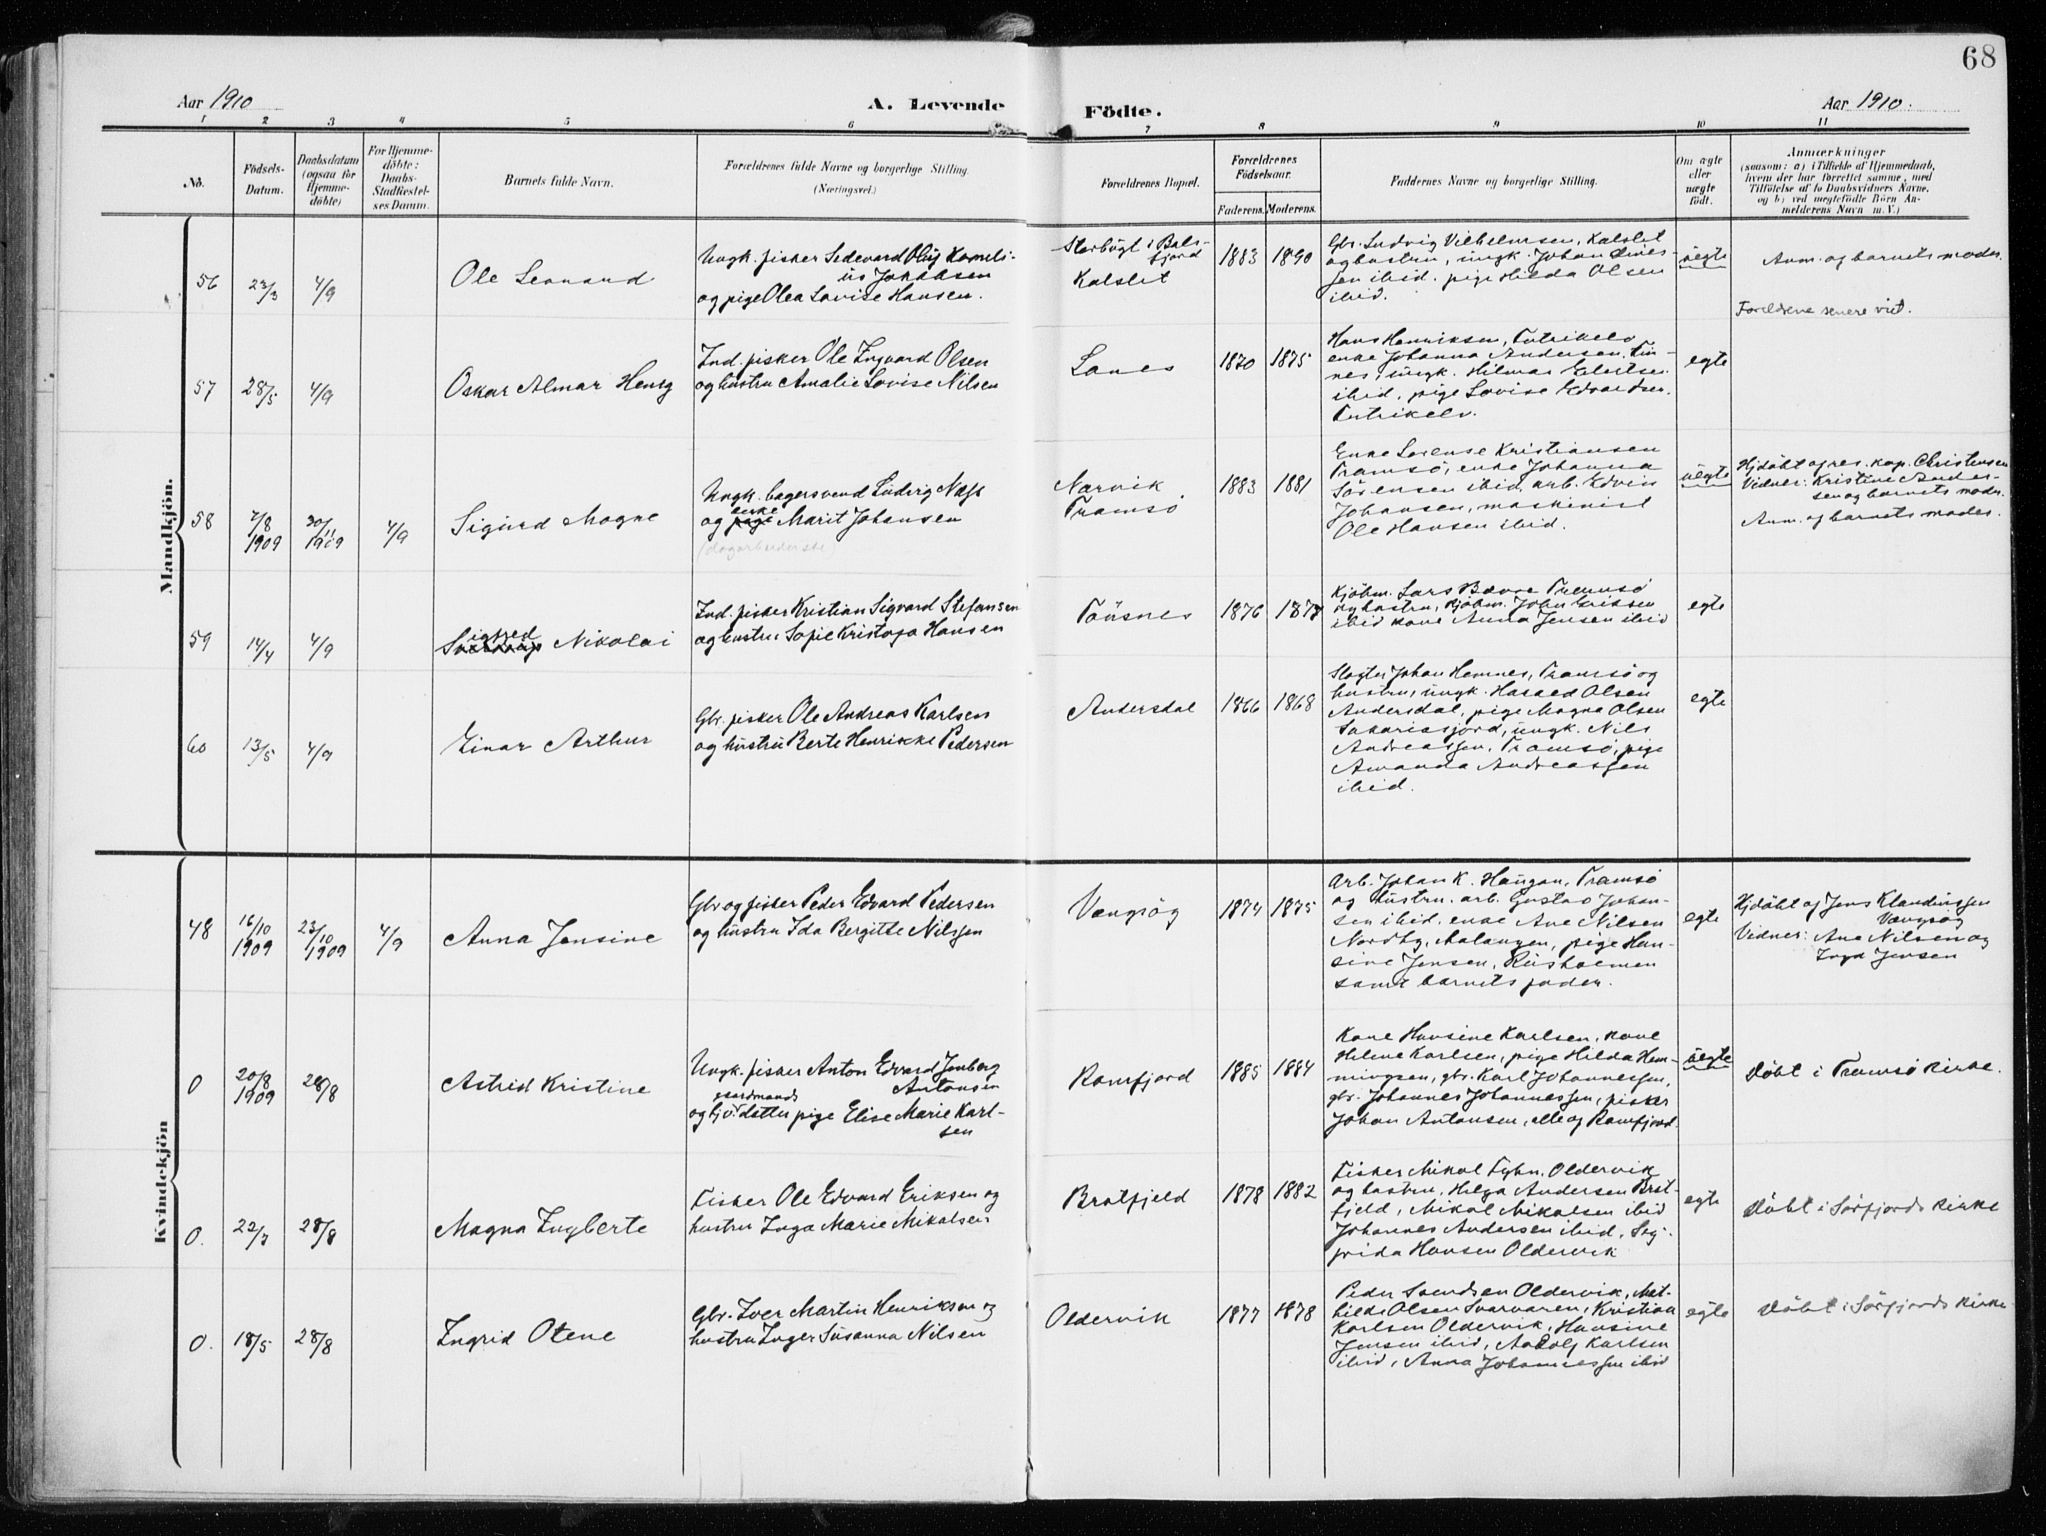 68
Aar 1910
A. Levende
Födte.
Aar 1910.
1 2 3 4 5 6 7 8 9 10 11
No.
Födsels-
Datum.
Daabsdatum
(ogsaa for
Hjemme-
döbte)
For Hjemme-
döbte:
Daabs-
Stadfæstel-
ses Datum.
Barnets fulde Navn.
Forældrenes fulde Navne og borgerlige Stilling.
(Næringsvei.)
Forældrenes Bopæl.
Forældrenes
Födselsaar.
Faderens.
Moderens.
Faddernes Navne og borgerlige Stilling.
Om ægte
eller
uægte
födt.
Anmærkninger
(saasom: a) i Tilfælde af Hjemmedaab,
hvem der har forrettet samme, med
Tilföielse af to Daabsvidners Navne,
og b) ved uægtefödte Börn An-
melderens Navn m. V.)
Mandkjön.
56
23/3
4/9
Ole Leonard
Ungk. fisker Sedevard Oluf Korneli-
us Jakobsen
og pige Olea Lovise Hansen.
Storbugt i Bals-
fjord
Kalslet
1883
1890
Gbr. Ludvig Vilhelmsen, Kalslet
og hustru, ungk. Johan
sen ibid. pige Hilda Olsen
ibid.
uegte
Anm. og barnets moder.
Foreldrene senere viet.
57
28/5
4/9
Oskar Almar Henry
Ind. fisker Ole Ingvard Olsen
og hustru Amalie Lovise Nilsen
Lanes
1870
1875
Hans Henriksen, Tutrikelv
enke Johanna Andersen, Fin-
nes, ungk. Hilmar Edvardsen
ibid, pige Lovise Edvardsen
Tutrikelv.
egte
58
7/8
1909
30/11
1909
4/9
Sigurd Magne
Ungk. bagersvend Ludvig Næss
enke
og pige Marit Johansen
(dagarbeiderske)
Narvik
Tromsö
1883
1881
Enke Lorense Kristiansen
Tromsö, enke Johanna
Sörensen ibid, arb. Edvin
Johansen, maskinist
Ole Hansen ibid.
uegte
Hjdöbt af res. kap. Christensen
Vidner: Kristine Ander-
sen og barnets moder.
Anm. og barnets moder.
59
14/4
4/9
Sigfred
Nikolai
Ind. fisker Kristian Sigvard Stefansen
og hustru Sofie Kristofa Hansen
Tönsnes
1876
1878
Kjöbm. Lars Bævre Tromsö
og hustru, kjöbm. John Eriksen
ibid kone Anna Jensen ibid
egte
60
13/5
4/9
Einar Arthur
Gbr. fisker Ole Andreas Karlsen
og hustru Berte Henrikke Pedersen
Andersdal
1866
1868
Slagter Johan Hemnes, Tromsö og
hustru, ungk. Harald Olsen
Andersdal, pige Magna Olsen
Sakariasfjord, ungk. Nils
Andreassen, Tromsö, pige
Amanda Andreassen
ibid.
egte
Kvindekjön
48
16/10
1909
23/10
1909
4/9
Anna Jensine
Gbr og fisker Peder Edvard Pedersen
og hustru Ida Bergitte Nilssen
Vængsög
1874
1875
Arb. Johan K. Haugan, Tromsö
og hustru. arb. Gustav Johan-
sen ibid. enke Ane Nilsen
Nordby, Malangen, pige Han-
sine Jensen, Risholmen
samt barnets fader.
egte
Hjdöbt af Jens Klaudiussen
Vængsög
Vidner: Ane Nilsen og
Inga Jensen
0
20/8
1909
28/8
Astrid Kristine
Ungk. fisker Anton Edvard Jenberg
Antonsen
gaardmands
og datter pige Elise Marie Karl-
sen
Ramfjord
1885
1884
Kone Hansine Karlsen, kone
Helene Karlsen, pige Hilda Hem-
mingsen, gbr. Karl Johannessen,
gbr. Johannes Johannessen, fisker
Johan Antonsen, alle af Ramfjord
uegte
Döbt i Tromsö kirke.
0.
22/7
28/8
Magna Ingberte
Fisker Ole Edvard Eriksen og
hustru Inga Marie Mikalsen
Bratfjeld
1878
1882
Fisker Mikal Fyhn, Oldervik
og hustru, Helga Andersen Brat-
fjeld, Mikal Mikalsen ibid
Johannes Andersen ibid, Sig-
frida Hansen Oldervik
egte
Döbt i Sörfjords kirke
0.
18/5
28/8
Ingrid Otene
Gbr. Iver Martin Henriksen og
hustru Inger Susanna Nilsen
Oldervik
1877
1878
Peder Svendsen Oldervik, Mat-
hilde Olsen Svarvaren, Kristian
Karlsen Oldervik, Hansine
Jensen ibid, Adolf Karlsen
ibid, Anna Johannessen ibid
egte
Döbt i Sörfjords kirke